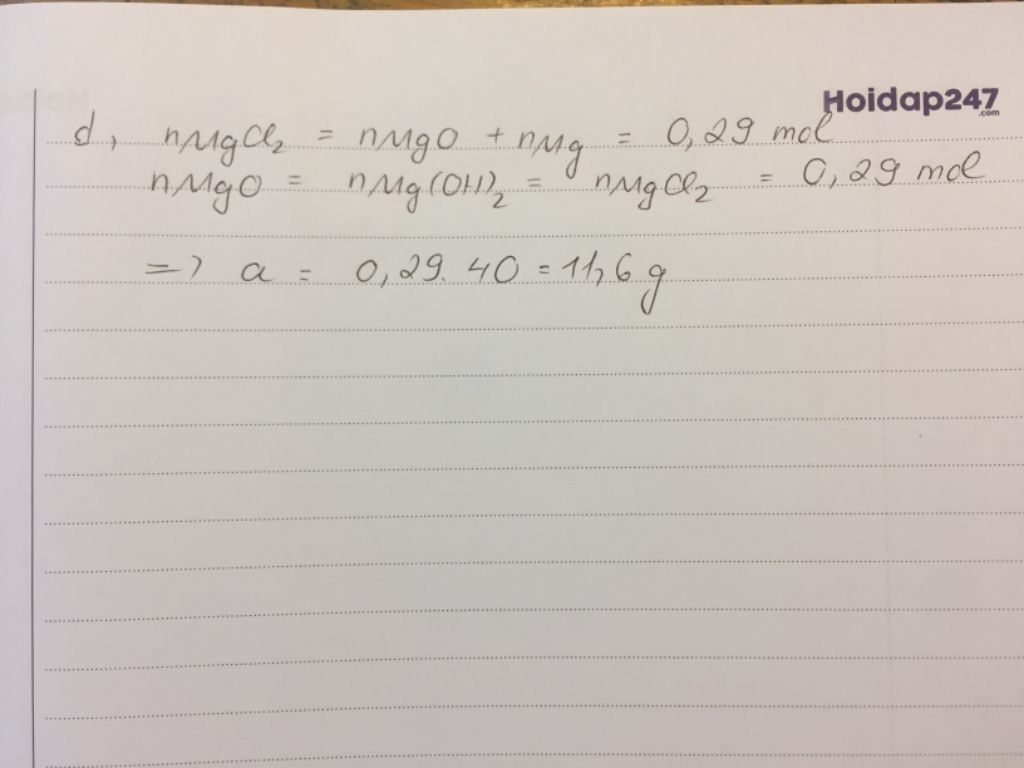 Hoidap247
.com
d, nMgCl₂ = nMgO + nMg = 0,29 mol
nMgO = nMg(OH)₂ = nMgCl₂ = 0,29 mol
=> a = 0,29.40 = 11,6 g